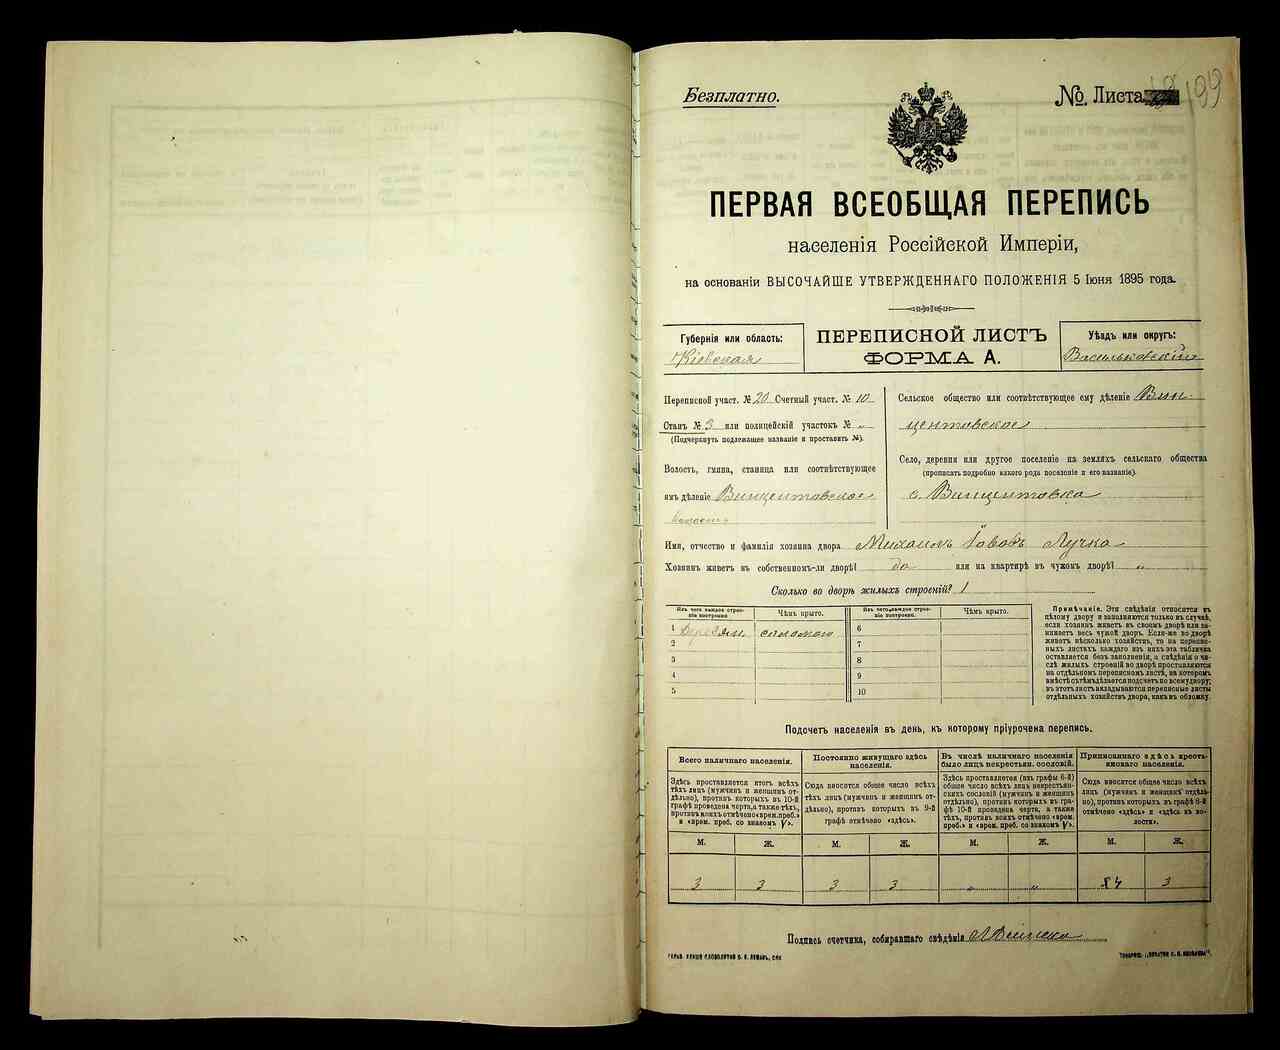 Безплатно.
№ Листа 199
ПЕРВАЯ ВСЕОБЩАЯ ПЕРЕПИСЬ
населенія Россійской Имперіи,
на основаніи ВЫСОЧАЙШЕ УТВЕРЖДЕННАГО ПОЛОЖЕНІЯ 5 Іюня 1895 года.
Губернія или область:
Кіевская
ПЕРЕПИСНОЙ ЛИСТЪ
ФОРМА А.
Уѣздъ или округъ:
Васильковскій
Переписной участ. № 20 Счетный участ. № 10
Станъ № 3 или полицейскій участокъ № „
(Подчеркнуть подлежащее названіе и проставить №).
Волость, гмина, станица или соотвѣтствующее
имъ дѣленіе Винцентовское
волость
Сельское общество или соотвѣтствующее ему дѣленіе Вин-
центовское
Село, деревня или другое поселеніе на земляхъ сельскаго общества
(прописать подробно какого рода поселеніе и его названіе).
с. Винцентовка
Имя, отчество и фамилія хозяина двора Михаилъ Іововъ Лучка
Хозяинъ живетъ въ собственномъ-ли дворѣ? да или на квартирѣ въ чужомъ дворѣ? „
Сколько во дворѣ жилыхъ строеній? 1
Изъ чего каждое строе-
ніе построено.
Чѣмъ крыто.
Изъ чего каждое строе-
ніе построено.
Чѣмъ крыто.
1 Деревян соломою 6
2 7
3 8
4 9
5 10
Примѣчаніе. Эти свѣдѣнія относятся къ
цѣлому двору и заполняются только въ случаѣ,
если хозяинъ живетъ въ своемъ дворѣ или за-
нимаетъ весь чужой дворъ. Если-же во дворѣ
живетъ нѣсколько хозяйствъ, то на перепис-
ныхъ листахъ каждаго изъ нихъ эта табличка
оставляется безъ заполненія, а свѣдѣнія о чи-
слѣ жилыхъ строеній во дворѣ проставляются
на отдѣльномъ переписномъ листѣ, на которомъ
вмѣстѣ съ тѣмъ дѣлается подсчетъ по всему двору;
въ этотъ листъ вкладываются переписные листы
отдѣльныхъ хозяйствъ двора, какъ въ обложку.
Подсчетъ населенія въ день, къ которому пріурочена перепись.
Всего наличнаго населенія.
Постоянно живущаго здѣсь
населенія.
Въ числѣ наличнаго населенія
было лицъ некрестьян. сословій.
Приписаннаго здѣсь кресть-
янскаго населенія.
Здѣсь проставляется итогъ всѣхъ
тѣхъ лицъ (мужчинъ и женщинъ от-
дѣльно), противъ которыхъ въ 10-й
графѣ проведена черта, а также тѣхъ,
противъ коихъ отмѣчено «врем. преб.»
и «врем. преб. со знакомъ V».
Сюда вносится общее число всѣхъ
тѣхъ лицъ (мужчинъ и женщинъ от-
дѣльно), противъ которыхъ въ 9-й
графѣ отмѣчено «здѣсь».
Здѣсь проставляется (изъ графы 6-й)
общее число всѣхъ лицъ некрестьян-
скихъ сословій (мужчинъ и женщинъ
отдѣльно), противъ которыхъ въ гра-
фѣ 10-й проведена черта, а также
тѣхъ, противъ коихъ отмѣчено «врем.
преб.» и «врем. преб. со знакомъ V».
Сюда вносится общее число всѣхъ
лицъ (мужчинъ и женщинъ отдѣль-
но), противъ которыхъ въ графѣ 8-й
отмѣчено «здѣсь» и «здѣсь въ во-
лости».
М. Ж. М. Ж. М. Ж. М. Ж.
3 3 3 3 „ „ 4 3
Подпись счетчика, собиравшаго свѣдѣнія